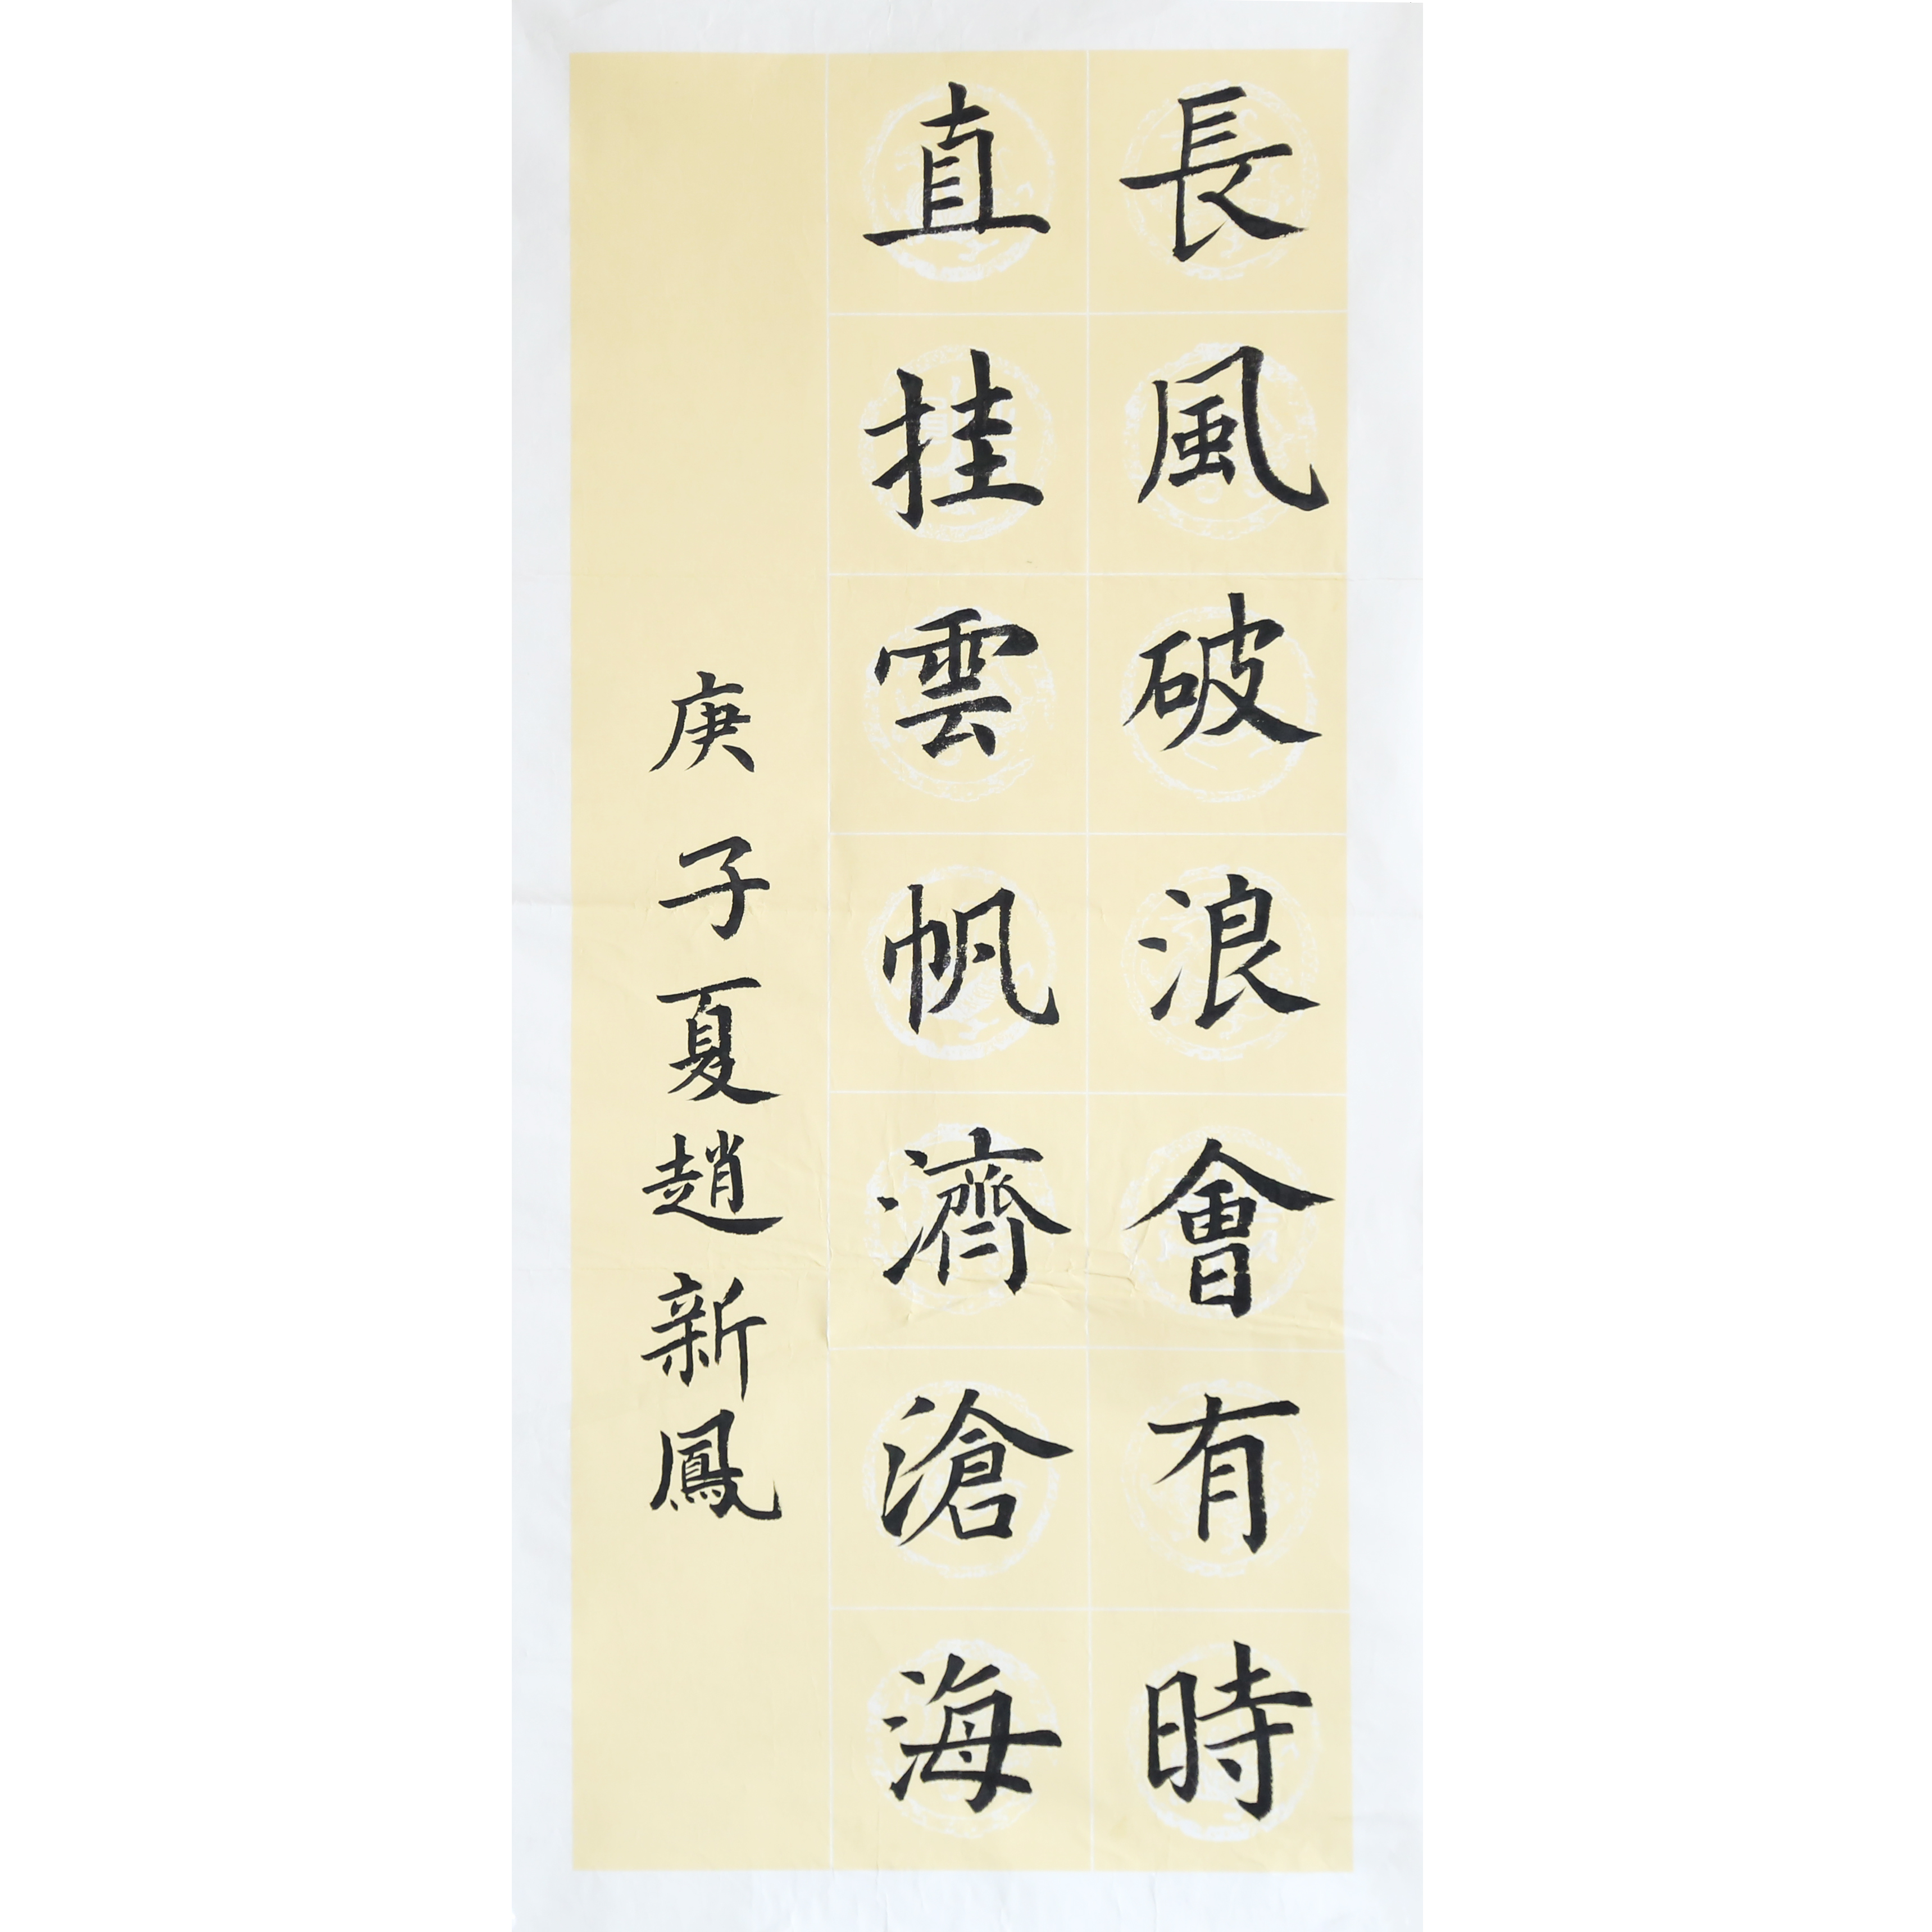 長風破浪會有時
直挂雲帆濟滄海
庚子夏趙新鳳